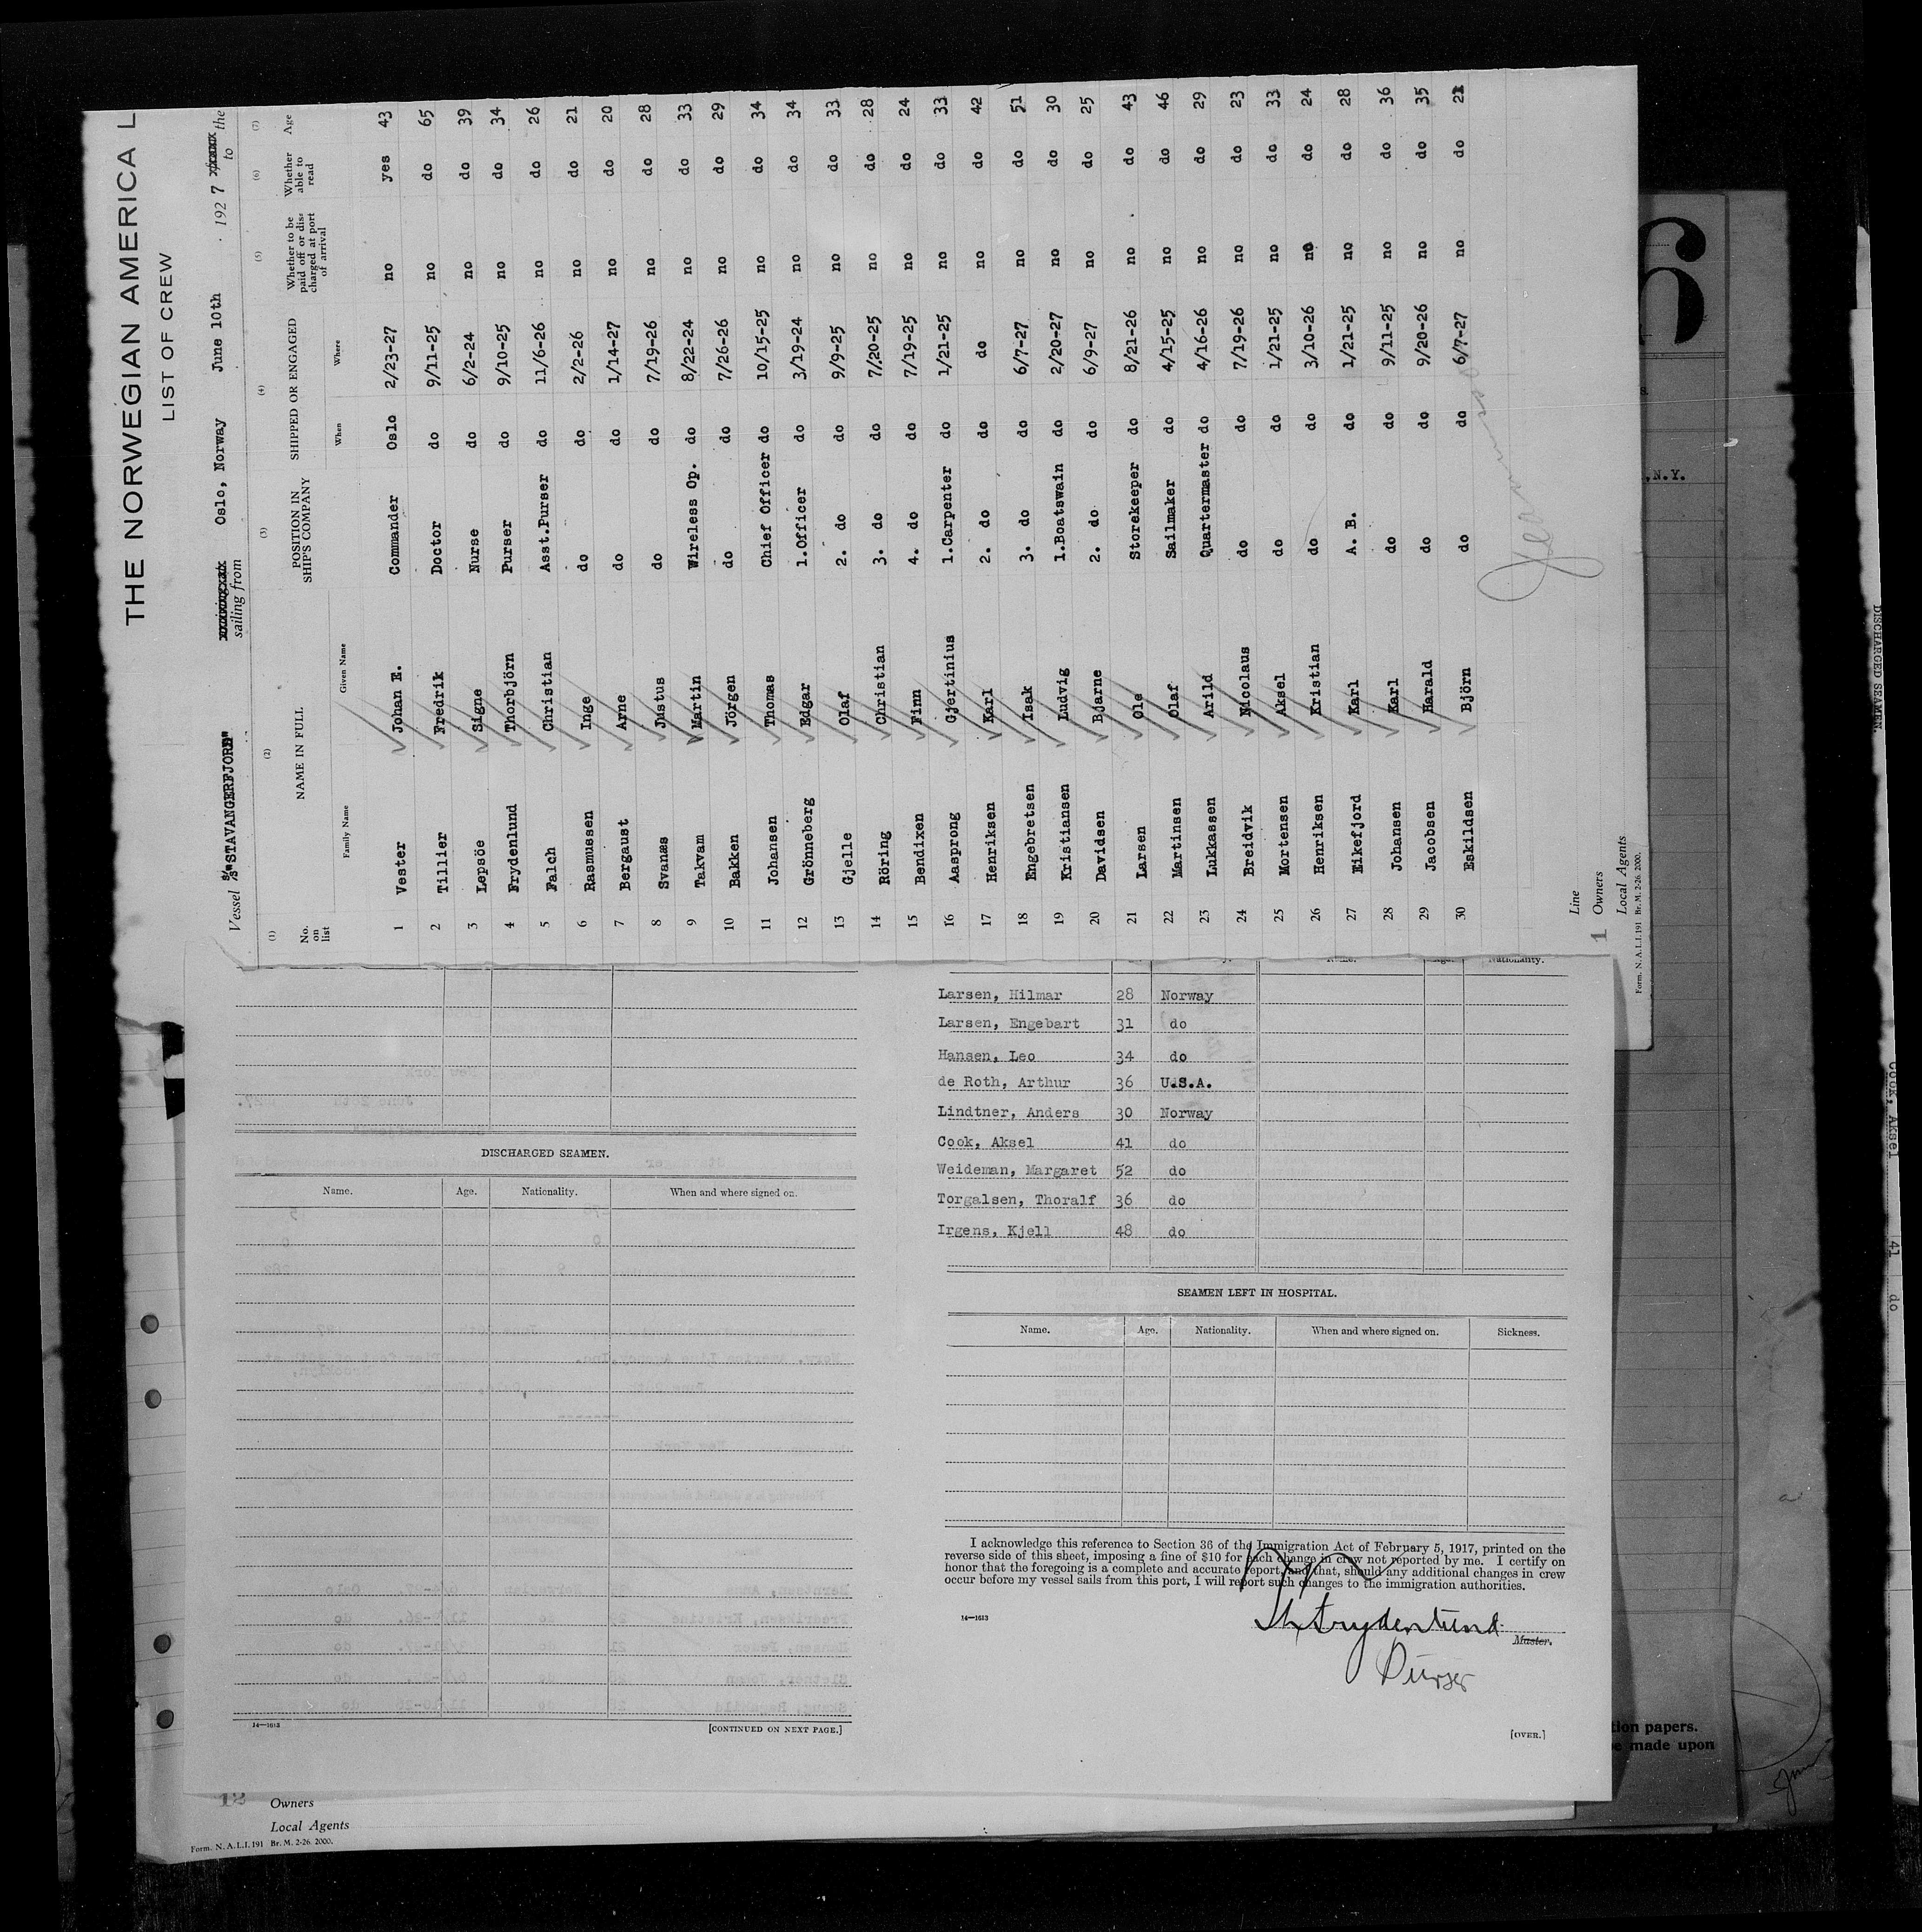 THE NORWEGIAN AMERICA L
LIST OF CREW
Vessel S/S "STAVANGERFJORD" sailing from Oslo, Norway June 10th 1927 the to
(1) (2) (3) (4) (5) (6) (7)
No. on list NAME IN FULL POSITION IN SHIP'S COMPANY SHIPPED OR ENGAGED Whether to be paid off or discharged at port of arrival Whether able to read Age
Family Name Given Name When Where
1 Vester Johan E. Commander Oslo 2/23-27 no yes 43
2 Tillier Fredrik Doctor do 9/11-25 no do 65
3 Lepsöe Signe Nurse do 6/2-24 no do 39
4 Frydenlund Thorbjörn Purser do 9/10-25 no do 34
5 Falch Christian Asst.Purser do 11/6-26 no do 26
6 Rasmussen Inge do do 2/2-26 no do 21
7 Bergaust Arne do do 1/14-27 no do 20
8 Svanæs Justus do do 7/19-26 no do 28
9 Takvam Martin Wireless Op. do 8/22-24 no do 33
10 Bakken Jörgen do do 7/26-26 no do 29
11 Johansen Thomas Chief Officer do 10/15-25 no do 34
12 Grönneberg Edgar 1.Officer do 3/19-24 no do 34
13 Gjelle Olaf 2. do do 9/9-25 no do 33
14 Röring Christian 3. do do 7/20-25 no do 28
15 Bendixen Finn 4. do do 7/19-25 no do 24
16 Aasprong Gjertinius 1.Carpenter do 1/21-25 no do 33
17 Henriksen Karl 2. do do do no do 42
18 Engebretsen Isak 3. do do 6/7-27 no do 51
19 Kristiansen Ludvig 1.Boatswain do 2/20-27 no do 30
20 Davidsen Bjarne 2. do do 6/9-27 no do 25
21 Larsen Ole Storekeeper do 8/21-26 no do 43
22 Martinsen Olaf Sailmaker do 4/15-25 no do 46
23 Lukkassen Arild Quartermaster do 4/16-26 no do 29
24 Breidvik Nicolaus do do 7/19-26 no do 23
25 Mortensen Aksel do do 1/21-25 no do 33
26 Henriksen Kristian do do 3/10-26 no do 24
27 Eikefjord Karl A. B. do 1/21-25 no do 28
28 Johansen Karl do do 9/11-25 no do 36
29 Jacobsen Harald do do 9/20-26 no do 35
30 Eskildsen Björn do do 6/7-27 no do
Line
1 Owners
Local Agents
Form. N. A. L. I. 191 Br. M. 2-26. 2000.
DISCHARGED SEAMEN.
Name. Age. Nationality. When and where signed on.
14—1613
[CONTINUED ON NEXT PAGE.]
Nationality.
Larsen, Hilmar 28 Norway
Larsen, Engebart 31 do
Hansen, Leo 34 do
de Roth, Arthur 36 U.S.A.
Lindtner, Anders 30 Norway
Cook, Aksel 41 do
Weideman, Margaret 52 do
Torgalsen, Thoralf 36 do
Irgens, Kjell 48 do
SEAMEN LEFT IN HOSPITAL.
Name. Age. Nationality. When and where signed on. Sickness.
I acknowledge this reference to Section 36 of the Immigration Act of February 5, 1917, printed on the
reverse side of this sheet, imposing a fine of $10 for each change in crew not reported by me. I certify on
honor that the foregoing is a complete and accurate report, and that, should any additional changes in crew
occur before my vessel sails from this port, I will report such changes to the immigration authorities.
14—1613
Th Frydenlund
Master.
Purser
[OVER.]
12 Owners
Local Agents
Form. N. A. L. I. 191 Br. M. 2-26. 2000.
6
,N.Y.
tion papers.
e made upon
DISCHARGED SEAMEN.
Cook, Aksel 41 do